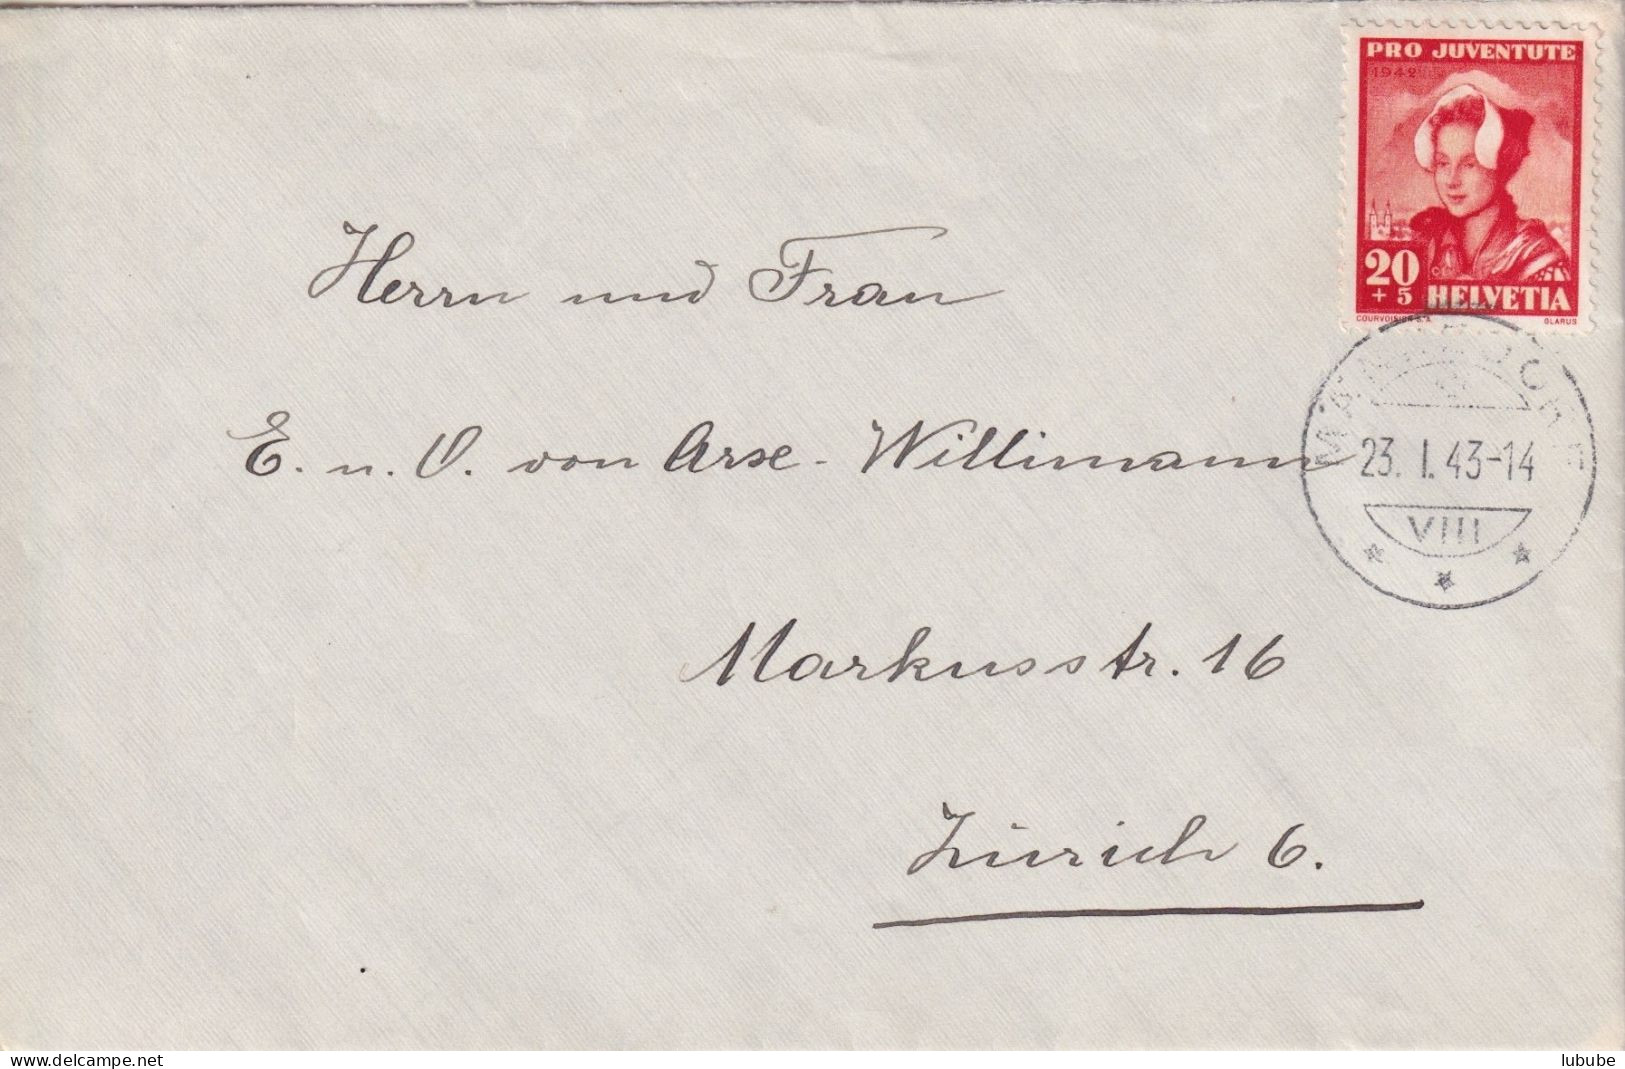 PRO JUVENTUTE
1942
20
+ 5 HELVETIA
COURVOISIER S.A. GLARUS
Herrn und Frau
E. u. O. von Arse - Willimann
23. I. 43-14
VIII
Markusstr. 16
Zürich 6.
delcampe.net
lubube